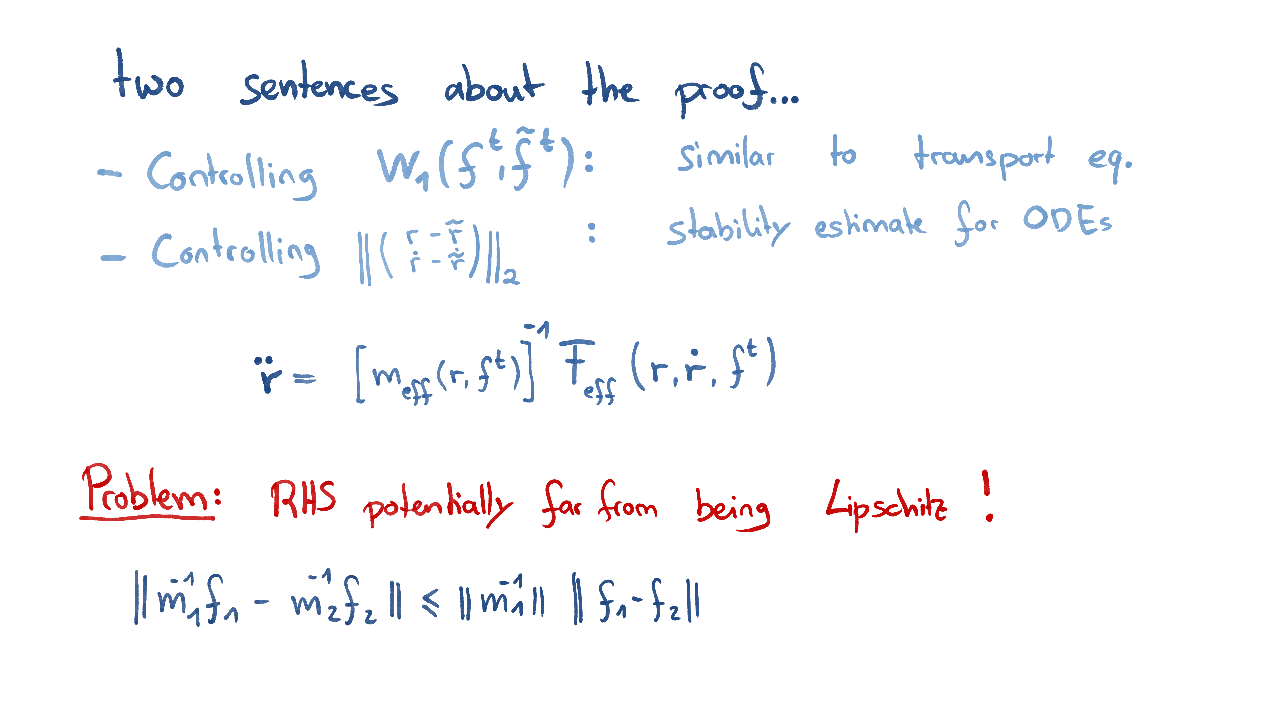 two sentences about the proof...
- Controlling W₁(fᵗ, f̃ᵗ): similar to transport eq.
- Controlling ‖(r - r̃ ṙ - ṙ̃)‖₂ : stability estimate for ODEs
r̈ = [m_eff(r, fᵗ)]⁻¹ F_eff (r, ṙ, fᵗ)
Problem: RHS potentially far from being Lipschitz !
‖m₁⁻¹f₁ - m₂⁻¹f₂‖ ⩽ ‖m₁⁻¹‖ ‖f₁-f₂‖